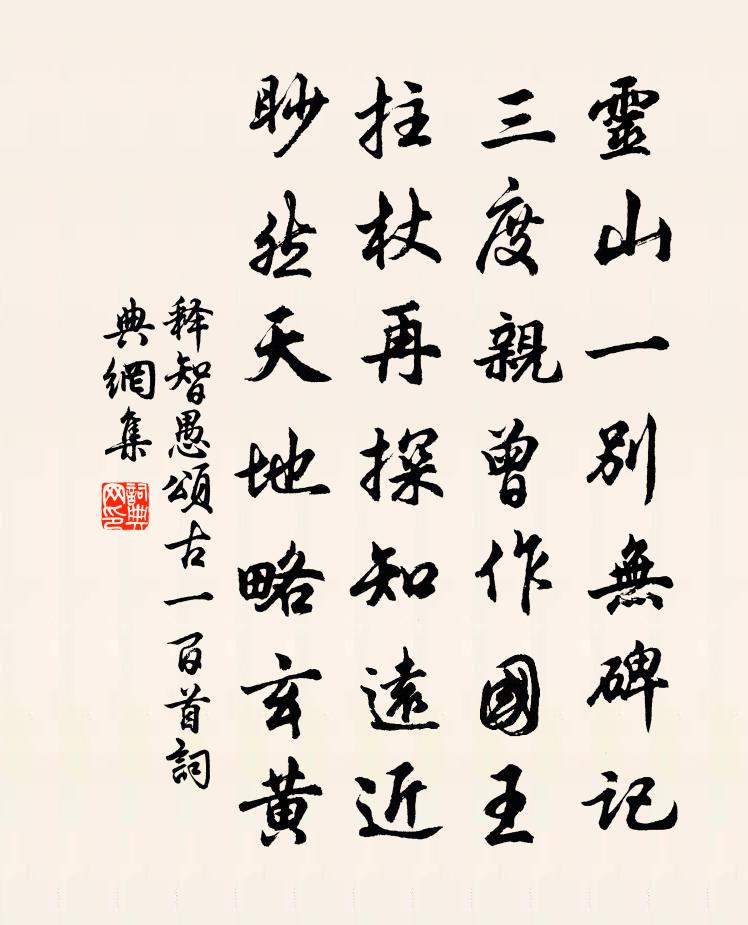 靈山一别無碑記
三度親曾作國王
拄杖再探知遠近
眇然天地略玄黄
释智愚頌古一百首詞
典網集
詞典网印